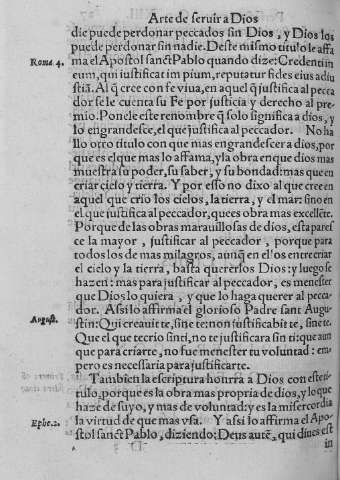 Arte de seruir a Dios
die puede perdonar peccados sin Dios, y Dios los
puede perdonar sin nadie. Deste mismo titulo le affa
Roma. 4.
ma el Apostol sanct Pablo quando dize: Credenti in
eum, qui iustificat impium, reputatur fides eius ad iu
stiā. Al q̄ cree con fe viua, en aquel q̄ justifica al pecca
dor se le cuenta su Fe por justicia y derecho al pre-
mio. Ponele este renombre q̄ solo significa a dios, y
lo engrandesce, el que justifica al peccador. No ha
llo otro titulo con que mas engrandescer a dios, por
que es el que mas lo affama, y la obra en que dios mas
muestra su poder, su saber, y su bondad: mas que en
criar cielo y tierra. Y por esso no dixo al que cree en
aquel que crio los cielos, la tierra, y el mar: sino en
el que justifica al peccador, que es obra mas excellēte.
Porque de las obras marauillosas de dios, esta pares
ce la mayor, justificar al peccador, porque para
todos los de mas milagros, aunq̄ en el'os entre criar
el cielo y la tierra, basta quererlos Dios: y luego se
hazen: mas para justificar al peccador, es menester
que Dios lo quiera, y que lo haga querer al pecca-
dor. Assi lo affirma el glorioso Padre sant Augu-
August.
stin: Qui creauit te, sine te: non justificabit te, sine te.
Que el que te crio sin ti, no te justificara sin ti: que aun
que para criarte, no fue menester tu voluntad: em-
pero es necessaria para justificarte.
Tambien la escriptura honrra a Dios con este ti-
tulo, porque es la obra mas propria de dios, y lo que
haze de suyo, y mas de voluntad: y es la misericordia
la virtud de que mas vsa. Y assi lo affirma el Apo-
Ephe. 2.
stol sanct Pablo, diziendo: Deus autē, qui diues est
in